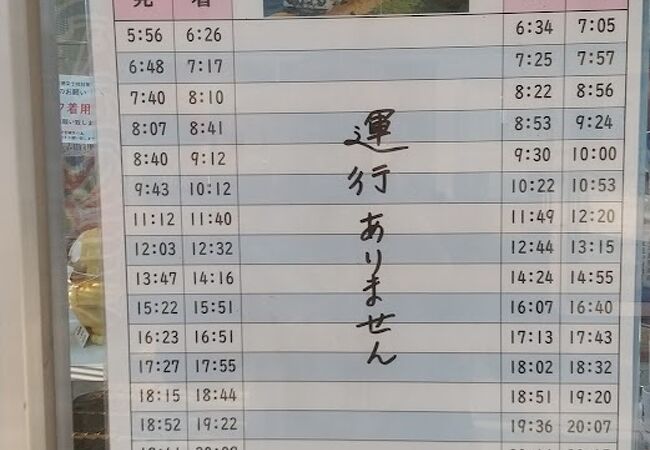 発 着
5:56 6:26 6:34 7:05
6:48 7:17 7:25 7:57
7:40 8:10 8:22 8:56
8:07 8:41 8:53 9:24
8:40 9:12 9:30 10:00
9:43 10:12 10:22 10:53
11:12 11:40 11:49 12:20
12:03 12:32 12:44 13:15
13:47 14:16 14:24 14:55
15:22 15:51 16:07 16:40
16:23 16:51 17:13 17:43
17:27 17:55 18:02 18:32
18:15 18:44 18:51 19:20
18:52 19:22 19:36 20:07
運行ありません
のお願い
着用